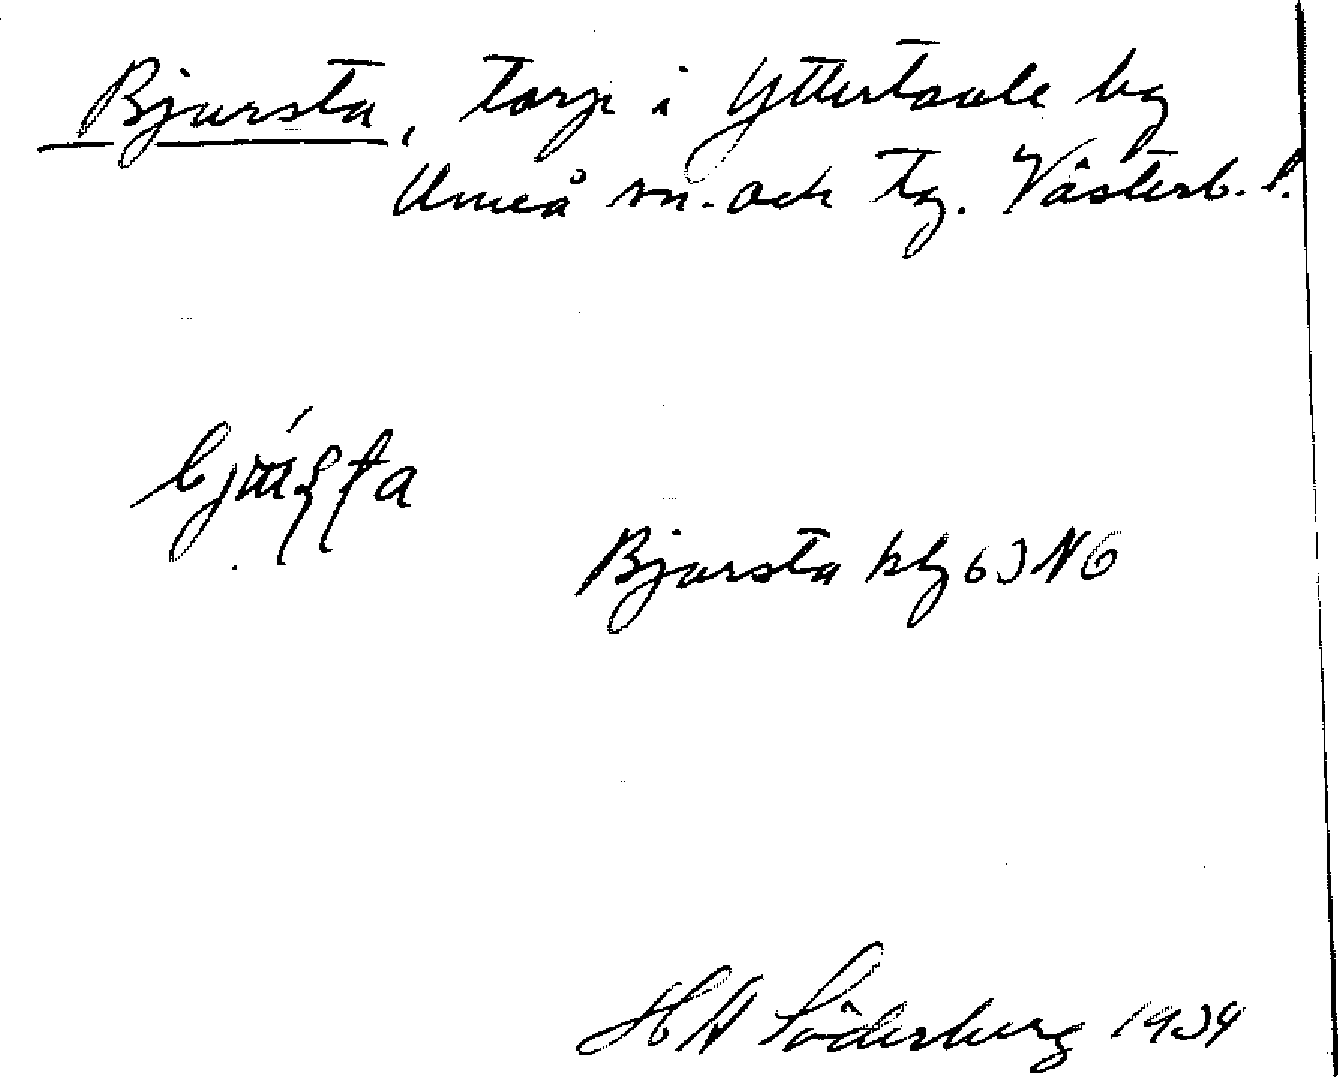 Bjursta, torp i Yttertavle by
Umeå sn. och tg. Västerb. l.
Bjursta kbl 63 NO
H A Söderberg 1934